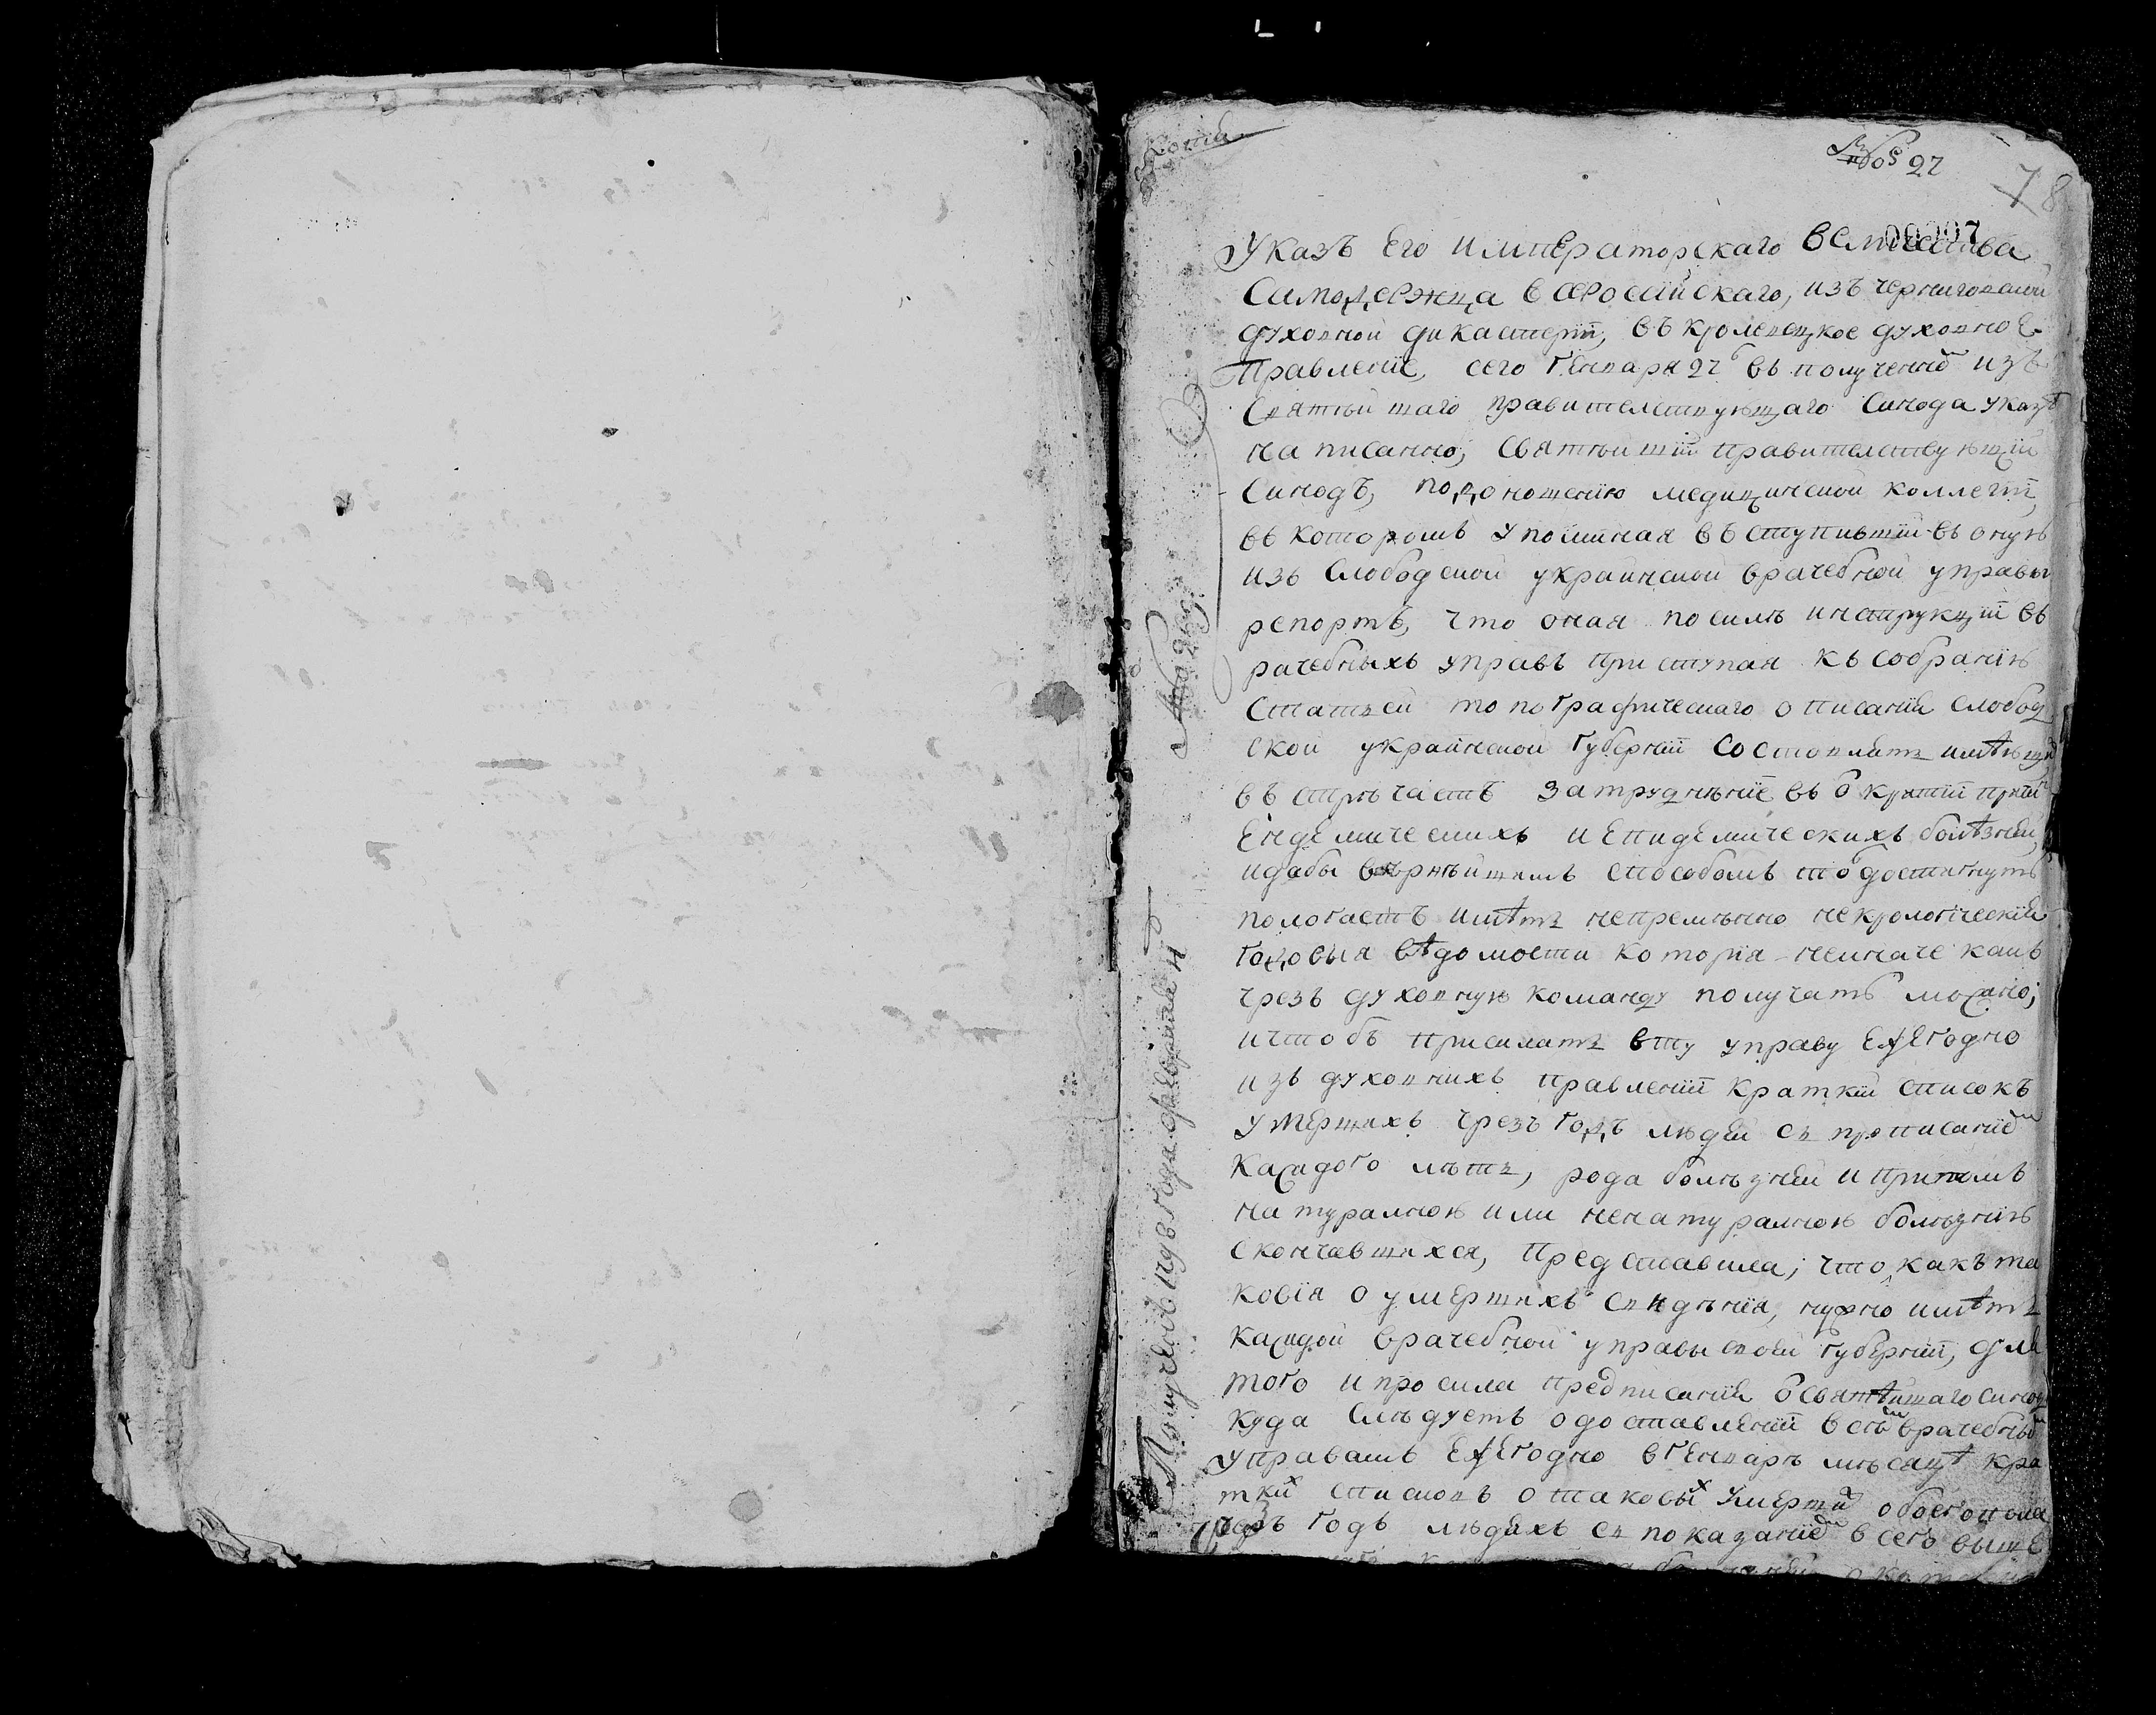 Копія
27
78
00007
Указъ Его императорскаго величества
Самодержца всеросийскаго, изъ черниговской
духовной дикастерїи, въ кролевецкое духовное
Правленїе, сего Генваря 27 въ полученном изъ
Святѣйшаго правителствующаго Синода указѣ
написанно, святѣйшїй правителствующїй
Синодъ, по доношенїю медицинской коллегїи,
въ которомъ упоминая вступившїй въ оную
изъ Слободской украинской врачебной управы
репортъ, что оная по силѣ инструкцїи въ
рачебныхъ управъ приступая къ собранїю
Статей топографическаго описанїя слобод
ской украинской губернїи
затрудненїе въ открытїи
Ендемическихъ и Епидемическихъ болѣзней,
и дабы вѣрнѣйшимъ способомъ то достигнуть
пологаетъ имѣть непремѣнно некрологическїя
годовыя вѣдомости которїя неиначе какъ
чрезъ духовную команду получать можно;
и чтобъ присилать в ту управу Ежегодно
изъ духовнихъ правленїй краткїй списокъ
умершихъ чрезъ годъ людей съ прописанїем
каждого лѣтъ, рода болѣзней и притомъ
натуралною или ненатуралною болѣзнїю
скончавшихся, представила; что какъ та
ковїя о умершихъ свѣдѣнїя, нужно имѣть
каждой врачебной управы своей губернїи, для
того и просила предписанїя о Святѣйшаго Синода
куда слѣдуетъ о доставленїи всѣм врачебным
управамъ Ежегодно в Генварѣ мѣсяцѣ кра
тких списковъ о таковых умерших обоего пола
чрезъ годъ людехъ съ показанїем всего выше
Полученъ 1798 года февраля